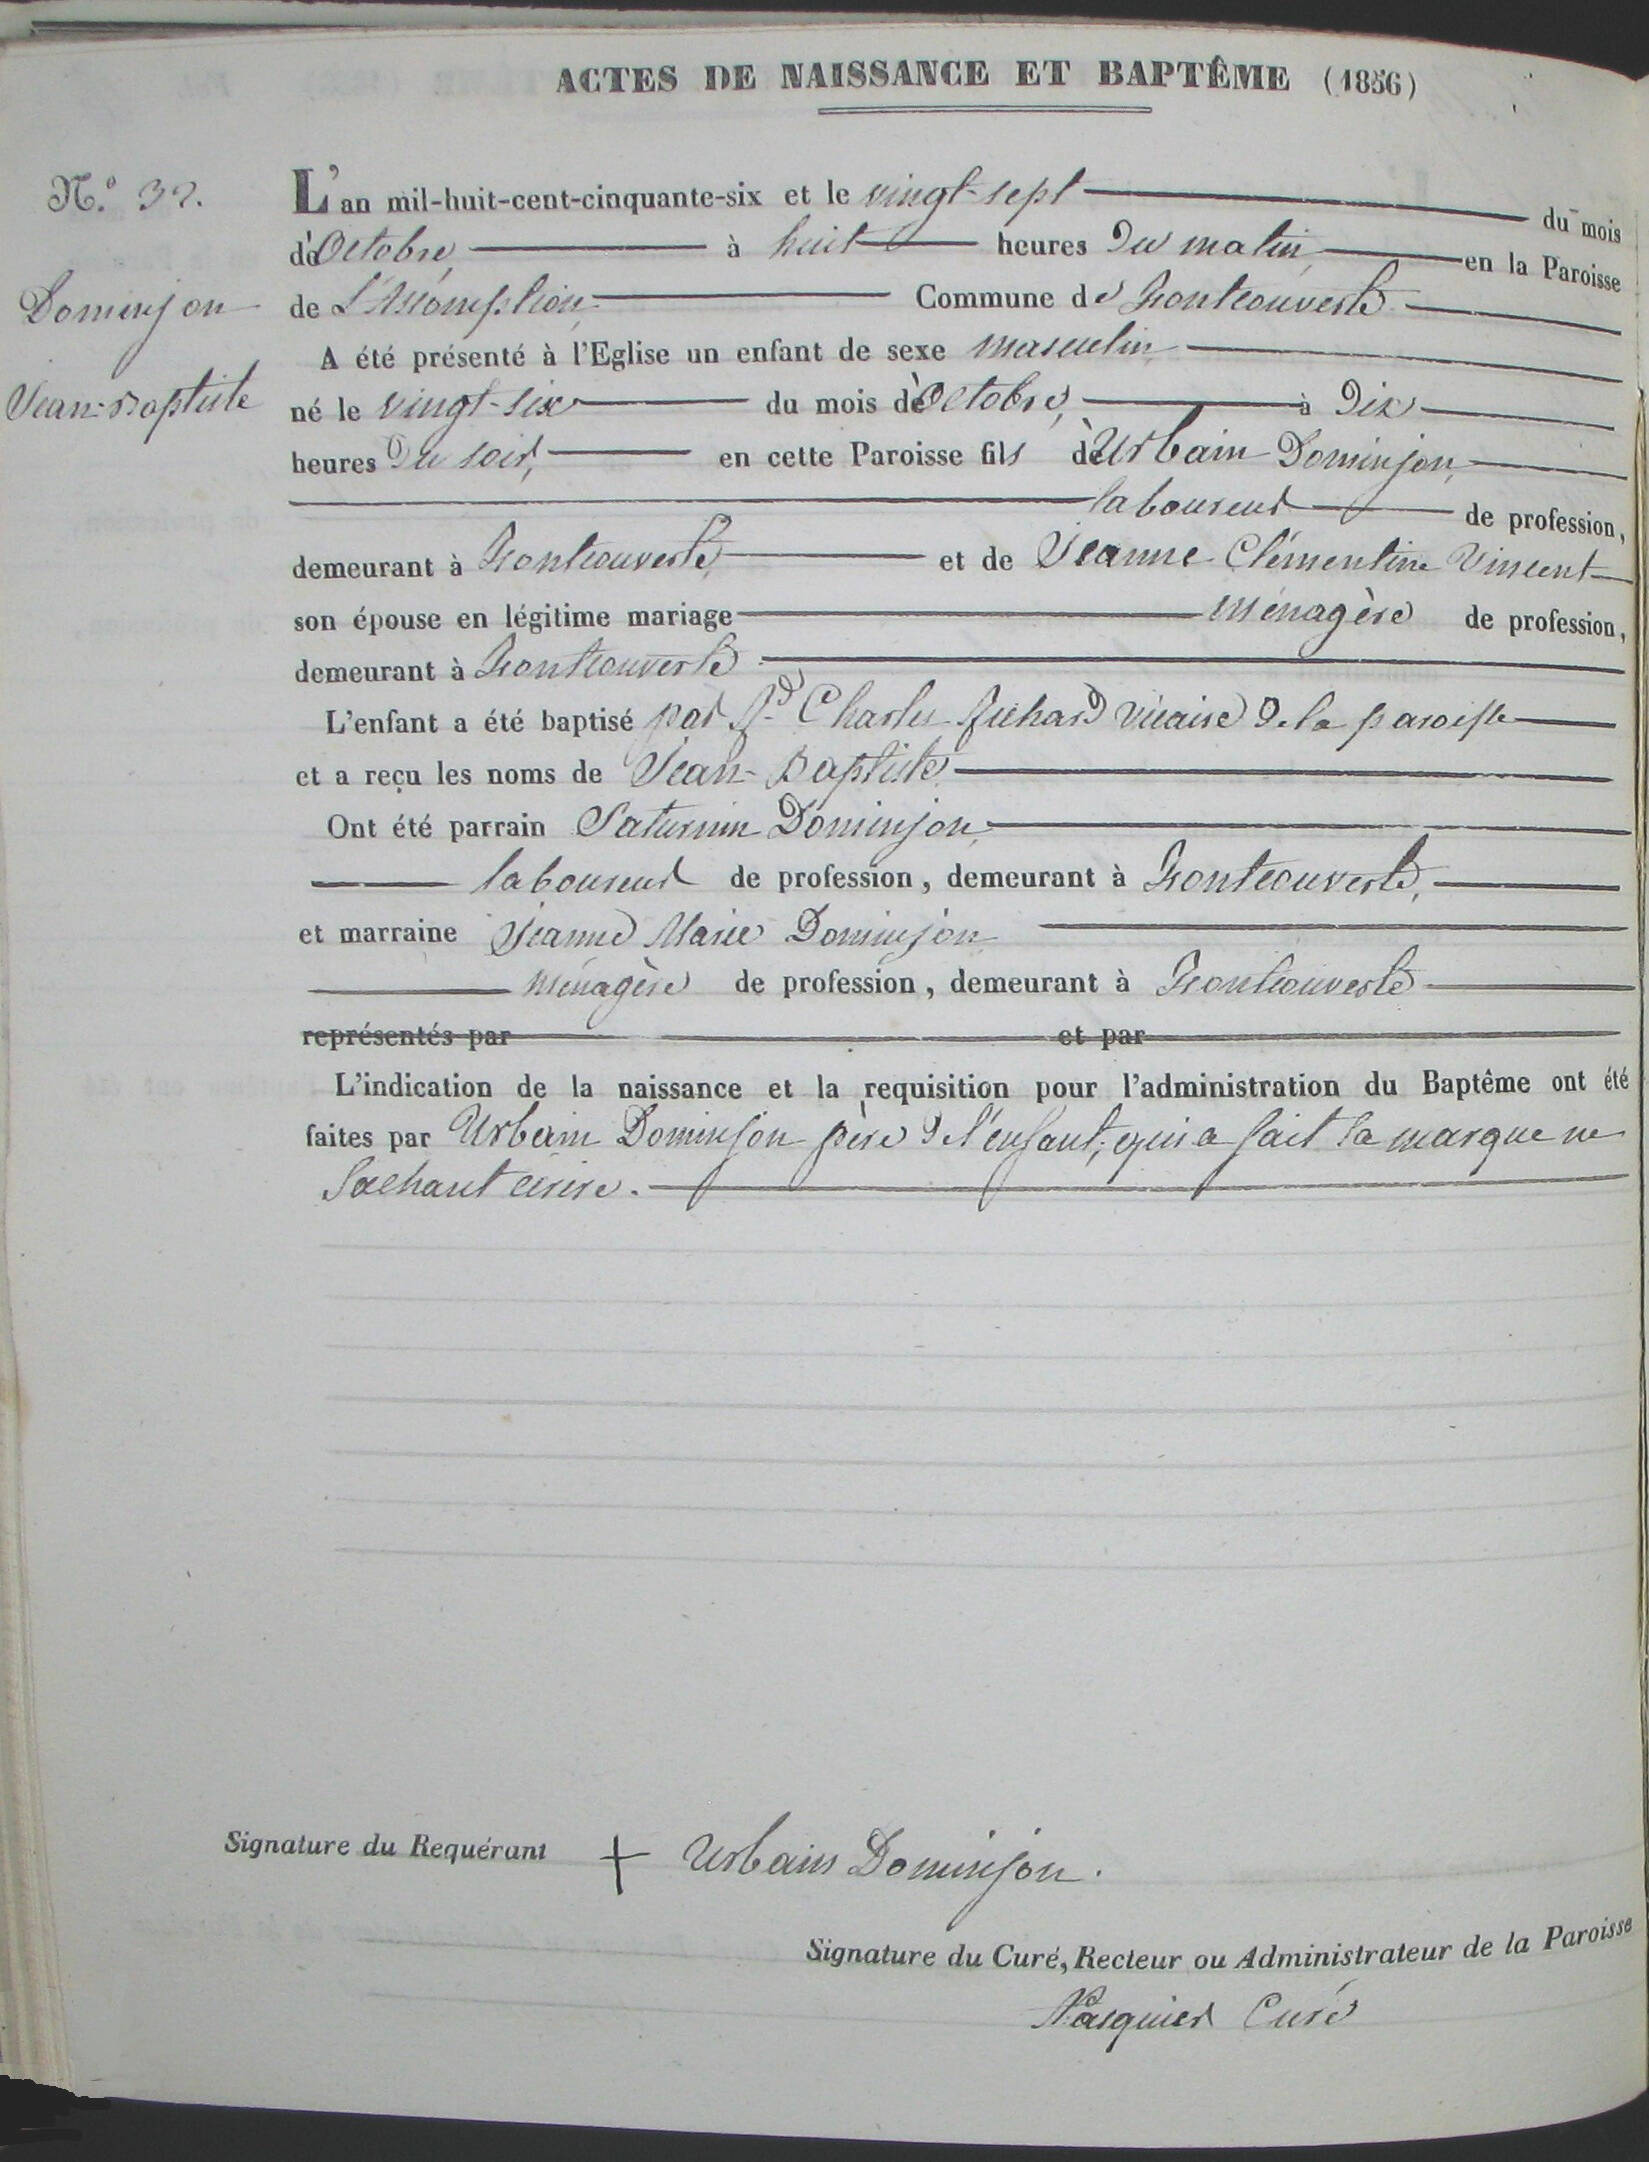 ACTES DE NAISSANCE ET BAPTÊME (1856)
N.º 32.
L'an mil-huit-cent-cinquante-six et le vingt-sept du mois
d'Octobre, à huit heures Du matin en la Paroisse
Dominjon
de L'Assomption Commune de Fontcouverte
A été présenté à l'Eglise un enfant de sexe masculin
Jean-Baptiste
né le vingt-six du mois d'Octobre, à Dix
heures Du soir, en cette Paroisse fils d'Urbain Dominjon,
laboureur de profession,
demeurant à Fontcouverte, et de Jeanne Clémentine Vincent
son épouse en légitime mariage ménagère de profession,
demeurant à Fontcouverte
L'enfant a été baptisé par Rd Charles Richard Vicaire De la paroisse
et a reçu les noms de Jean-Baptiste
Ont été parrain Saturnin Dominjon,
laboureur de profession, demeurant à Fontcouverte,
et marraine Jeanne Marie Dominjon
ménagère de profession, demeurant à Fontcouverte
représentés par et par
L'indication de la naissance et la requisition pour l'administration du Baptême ont été
faites par Urbain Dominjon père De l'enfant, qui a fait sa marque ne
Sachant écrire.
Signature du Requérant + Urbain Dominjon.
Signature du Curé, Recteur ou Administrateur de la Paroisse
Pasquier Curé